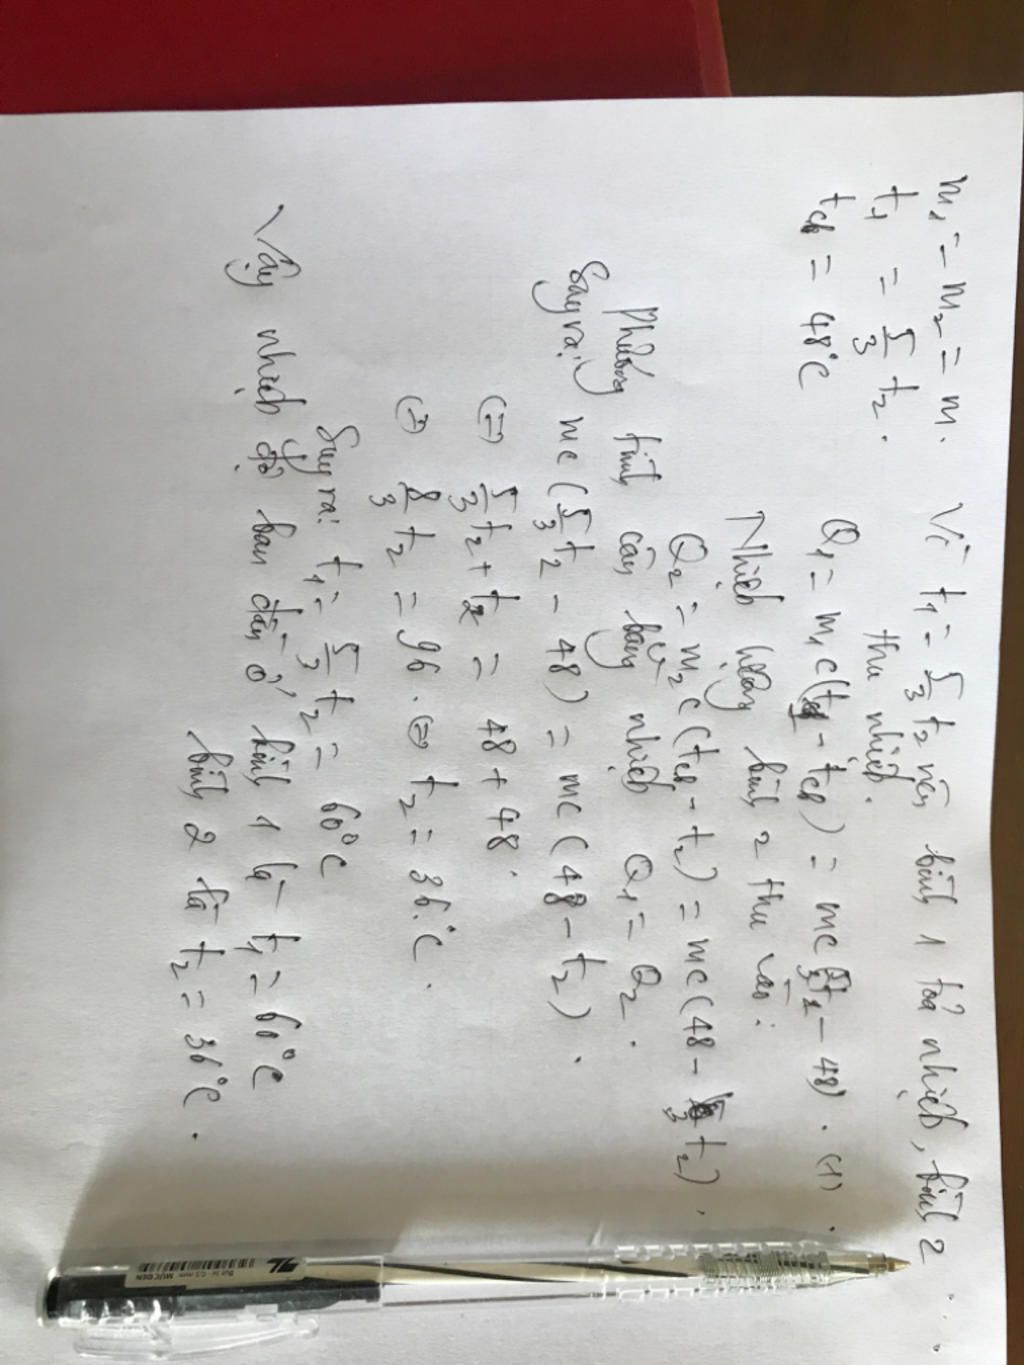 m₁ = m₂ = m.
t₁ = 5/3 t₂.
tcb = 48°C
Vì t₁ = 5/3 t₂ nên bình 1 toả nhiệt, bình 2
thu nhiệt.
Q₁ = m₁c(t₁ - tcb) = mc(5/3 t₂ - 48). (1).
Nhiệt lượng bình 2 thu vào:
Q₂ = m₂c(tcb - t₂) = mc(48 - t₂).
Phương trình cân bằng nhiệt Q₁ = Q₂.
Suy ra: mc(5/3 t₂ - 48) = mc(48 - t₂).
(=) 5/3 t₂ + t₂ = 48 + 48.
(=) 8/3 t₂ = 96. (=) t₂ = 36°C.
Suy ra: t₁ = 5/3 t₂ = 60°C
Vậy nhiệt độ ban đầu ở bình 1 là t₁ = 60°C
bình 2 là t₂ = 36°C.
MỰC ĐEN